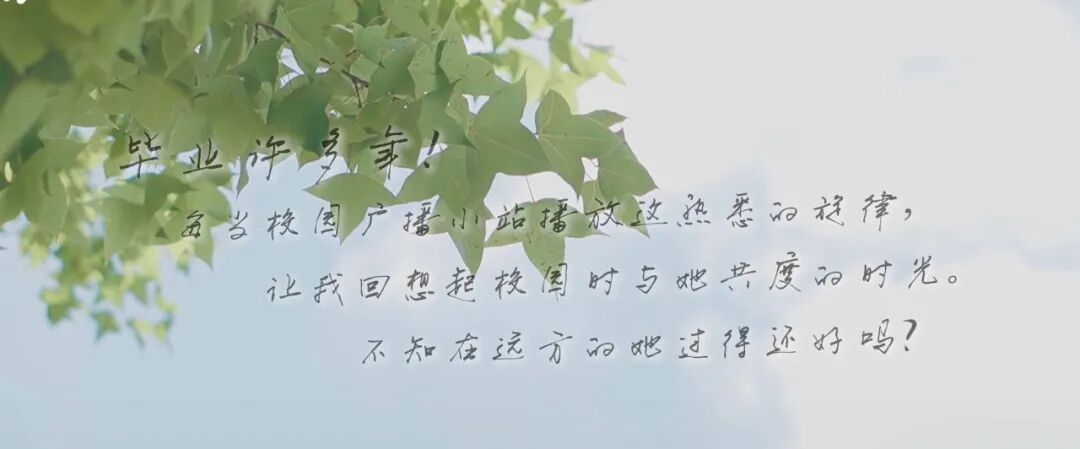 毕业许多年!
每当校园广播小站播放这熟悉的旋律,
让我回想起校园时与她共度的时光。
不知在远方的她过得还好吗?